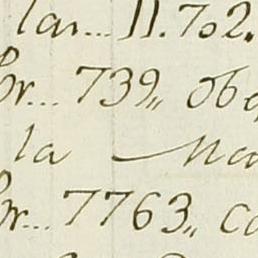 lar... 11.702.
Br... 739,, ob
la — Ma
Br... 7763,, Co